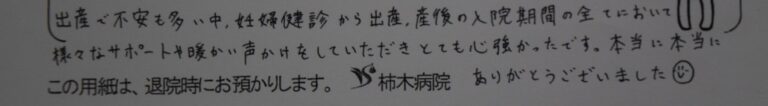 出産で不安も多い中、妊婦健診から出産、産後の入院期間の全てにおいて
様々なサポートや暖かい声かけをしていただきとても心強かったです。本当に本当に
この用紙は、退院時にお預かりします。 柿木病院 ありがとうございました☺